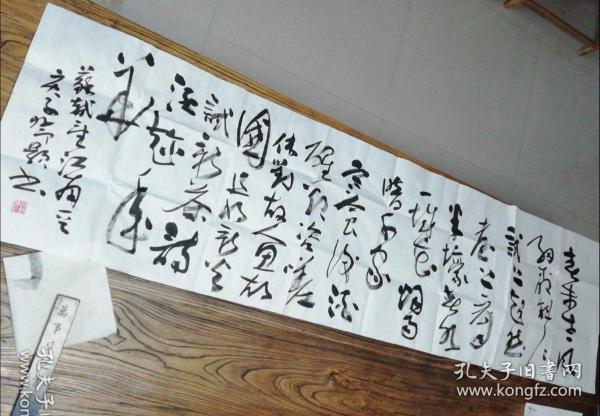 春未老风
细柳斜斜
试上超然
台上看
半壕春水
一城花烟雨
暗千家
寒食后酒
醒却咨嗟
休對故人思故
國且将新火
試新茶詩
酒趁年
苏轼望江南
庚子
书
孔夫子旧书网
www.kongfz.com